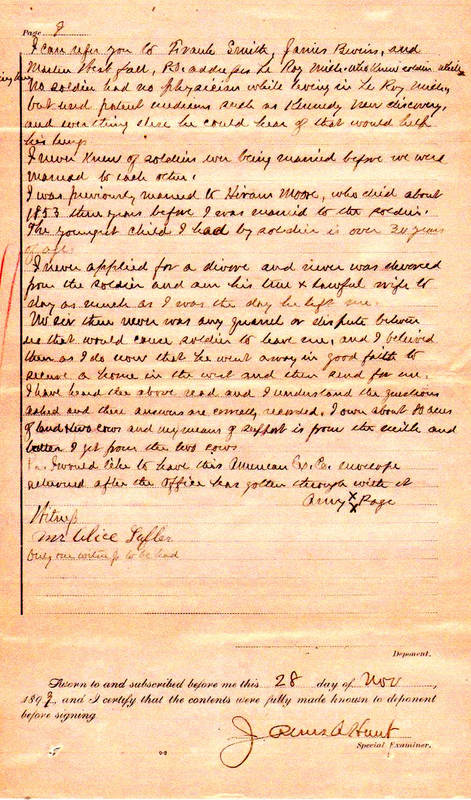 Page 9
I can refer you to Frank Smith, James Bivins, and
Martin Westfall, P.O. addresses Le Roy Mich. who knew soldier
No soldier had no physician while living in Le Roy Mich,
but used patent medicines such as Kennedy New discovery,
and everything else he could hear of that would help
his lungs
I never knew of soldier ever being married before we were
married to each other.
I was previously married to Hiram Moore, who died about
1853 three years before I was married to the soldier.
The youngest child I had by soldier is over 20 years
of age
I never applied for a divorce and never was divorced
from the soldier and am his true & lawful wife to
day as much as I was the day he left me.
No sir there never was any quarrel or dispute between
us that would cause soldier to leave me, and I believed
then as I do now that he went away in good faith to
secure a home in the west and then send for me.
I have heard the above read and I understand the questions
asked and these answers are correctly recorded, I own about 80 acres
of land & two cows and my means of support is from the milk and
butter I get from the two cows
I would like to have this American Ex. Co. envelope
returned after the office has gotten through with it
Amy X Page
Witness
Mrs Alice
Only one witness to be had
Deponent.
Sworn to and subscribed before me this 28 day of Nov,
189, and I certify that the contents were fully made known to deponent
before signing
James A Hunt
Special Examiner.